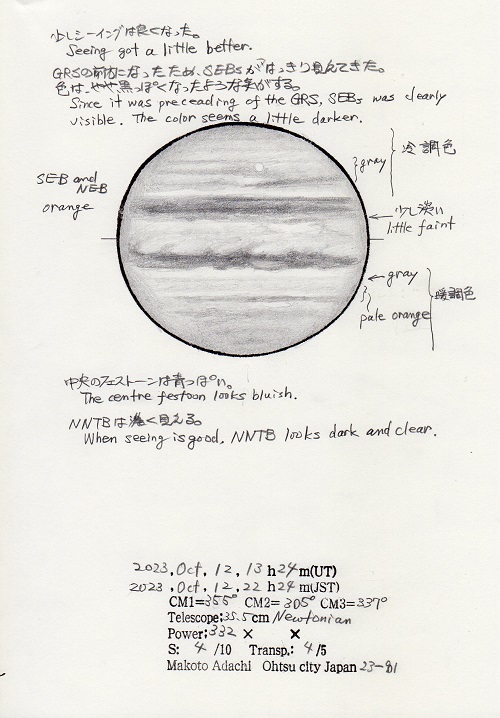 少しシーイングは良くなった。
Seeing got a little better.
GRSの前方になったため、SEBsがはっきり見えてきた。
色は、やや黒っぽくなったような気がする。
Since it was preceading of the GRS, SEBs was clearly
visible. The color seems a little darker.
SEB and
NEB
orange
gray
冷調色
少し淡い
little faint
gray
pale orange
暖調色
中央のフェストーンは青っぽい。
The centre festoon looks bluish.
NNTBは濃く見える。
When seeing is good, NNTB looks dark and clear.
2023, Oct, 12, 13 h 24 m(UT)
2023, Oct, 12, 22 h 24 m(JST)
CM1=355° CM2= 305° CM3=337°
Telescope:35.5cm Newtonian
Power:332 × ×
S: 4 /10 Transp.: 4 /5
Makoto Adachi Ohtsu city Japan 23-81